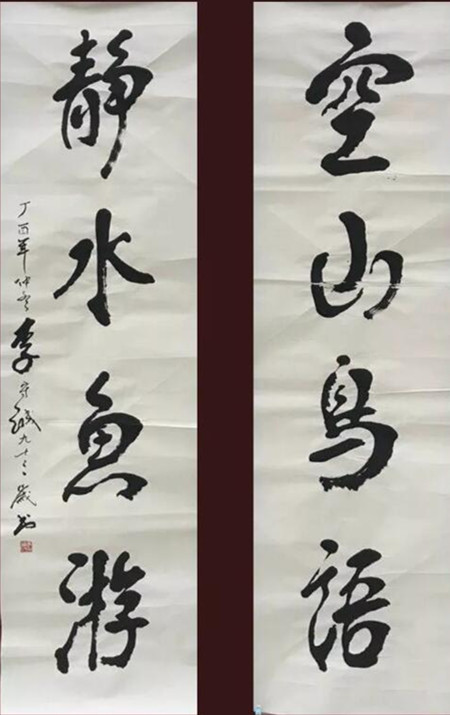 空山鳥語
静水魚游
丁酉年仲冬李守誠九十三歲書